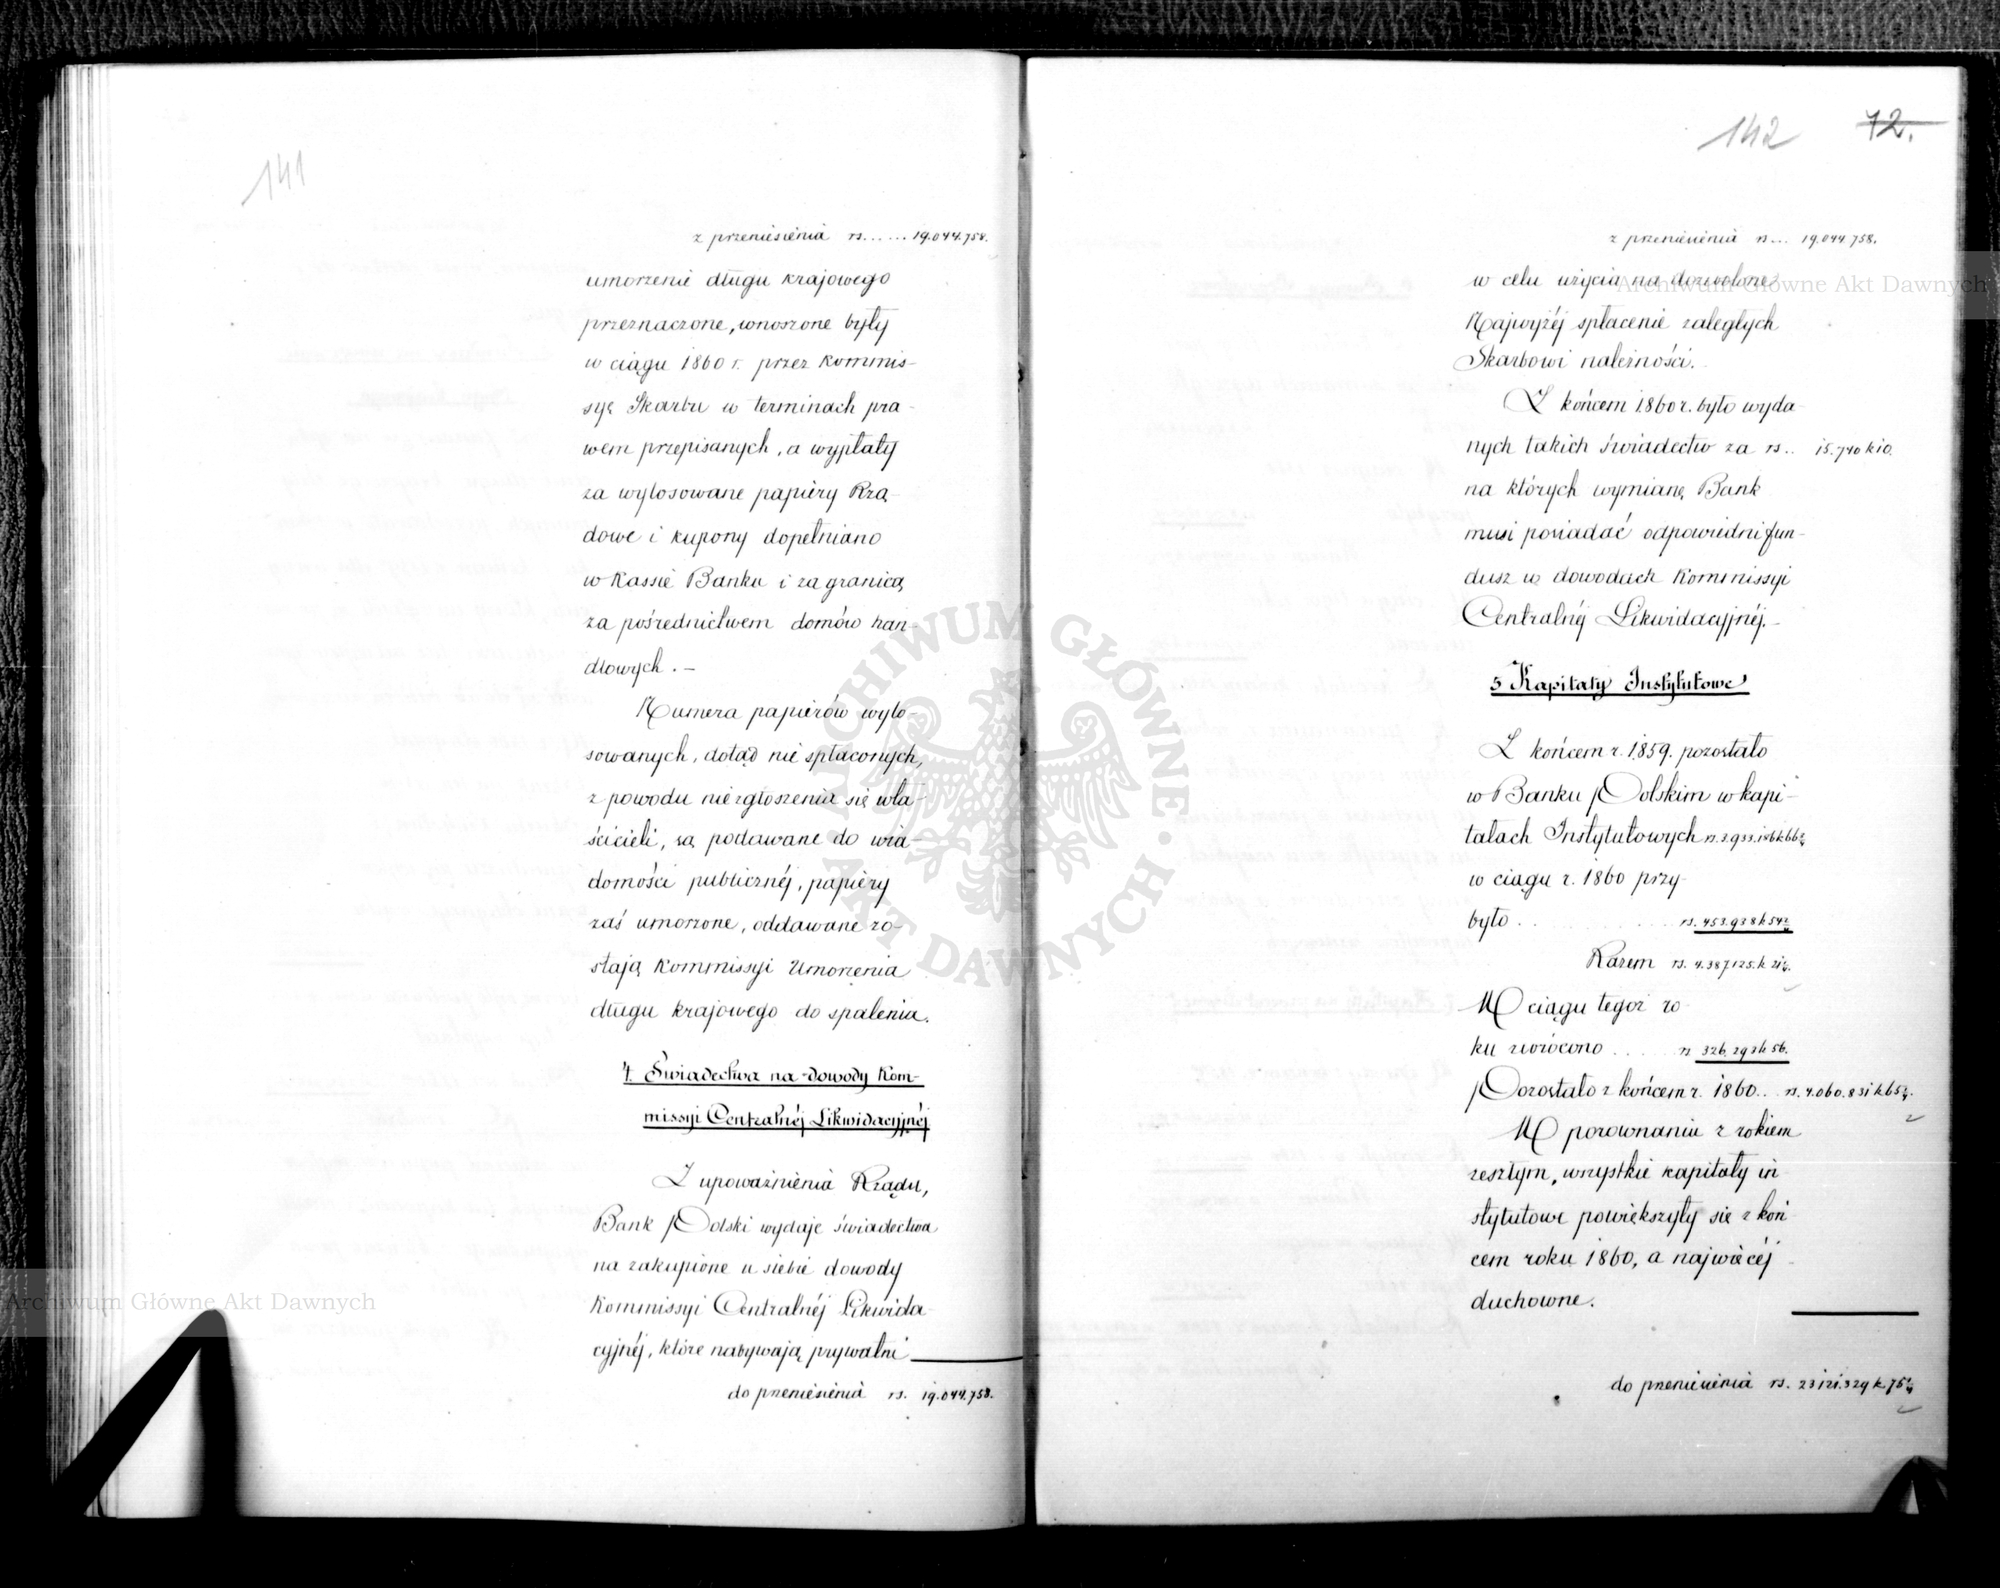 141
z przeniesienia rs...... 19.044.758.
umorzenie długu krajowego
przeznaczone, wnoszone były
w ciągu 1860 r. przez Kommis-
syę Skarbu w terminach pra-
wem przepisanych, a wypłaty
za wylosowane papiery Rzą-
dowe i kupony dopełniano
w Kassie Banku i za granicą
za pośrednictwem domów han-
dlowych. –
Numera papierów wylo-
sowanych, dotąd nie spłaconych,
z powodu niezgłoszenia się wła-
ścicieli, są podawane do wia-
domości publicznéj, papiery
zaś umorzone, oddawane zo-
stają Kommissyi Umorzenia
długu krajowego do spalenia.
4. Świadectwa na dowody Kom-
missyi Centralnéj Likwidacyjnéj
Z upoważnienia Rządu,
Bank Polski wydaje świadectwa
na zakupione u siebie dowody
Kommissyi Centralnéj Likwida-
cyjnéj, które nabywają prywatni
do przeniesienia rs. 19.044.758.
142 72.
z przeniesienia rs... 19.044.758.
w celu użycia na dozwolone
Najwyżéj spłacenie zaległych
Skarbowi należności.
Z końcem 1860 r. było wyda-
nych takich świadectw za rs.. 15.740 k 10.
na których wymianę Bank
musi posiadać odpowiedni fun-
dusz w dowodach Kommissyi
Centralnéj Likwidacyjnéj. –
5 Kapitały Instytutowe
Z końcem r. 1859. pozostało
w Banku Polskim w kapi-
tałach Instytutowych rs. 3.933.186 k 66½
w ciągu r. 1860 przy-
było . . . . . . . . . . rs. 453.938 k 54½
Razem rs. 4.387.125. k 21¼.
W ciągu tegoż ro-
ku zwrócono ..... rs 326.293 k 56.
Pozostało z końcem r. 1860... rs. 4.060.831 k 65¼.
W porównaniu z rokiem
zeszłym, wszystkie kapitały in
stytutowe powiększyły się z koń
cem roku 1860, a najwięcéj
duchowne.
do przeniesienia rs. 23.121.329 k 75¼
ARCHIWUM GŁÓWNE AKT DAWNYCH
Archiwum Główne Akt Dawnych
Archiwum Główne Akt Dawnych